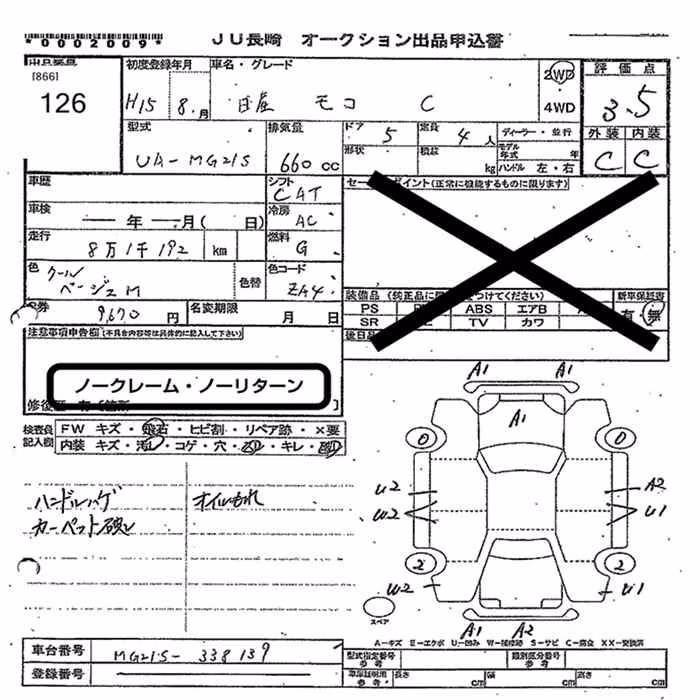 *0002009*
JU長崎 オークション出品申込書
[866]
126
初度登録年月
H15 8月
車名・グレード
日産 モコ C
2WD
4WD
評価点
3.5
外装 内装
C C
型式
UA-MG21S
排気量
660cc
ドア 5
定員 4人
形状
積載 kg
ディーラー・並行
モデル年式 年
ハンドル 左・右
車歴
シフト
CAT
セールスポイント(正常に機能するものに限ります)
車検
年 月( 日)
冷房
AC
走行
8万1千192 km
燃料
G
色
クール
ベージュM
色替
色コード
ZA4
9,670円
名変期限
月 日
装備品
PS
ABS エアB
SR
TV カワ
新車保証書
有・無
注意事項申告欄(不具合内容等は具体的に記入して下さい)
ノークレーム・ノーリターン
検査員
記入欄
FW キズ・飛石・ヒビ割・リペア跡・×要
内装 キズ・汚レ・コゲ・穴・・キレ・
ハンドルハゲ
オイルもれ
カーペット破レ
A1
A1
0 0
U2
W2
A2
U1
2 2
W2
U1
スペア
A1 A2
A-キズ E-エクボ U-凹み W-補修跡 S-サビ C-腐食 XX-交換済
車台番号
MG21S-338139
登録番号
型式指定番号
参考
類別区分番号
参考
車庫証明用
参考
長さ cm
幅 cm
高さ cm